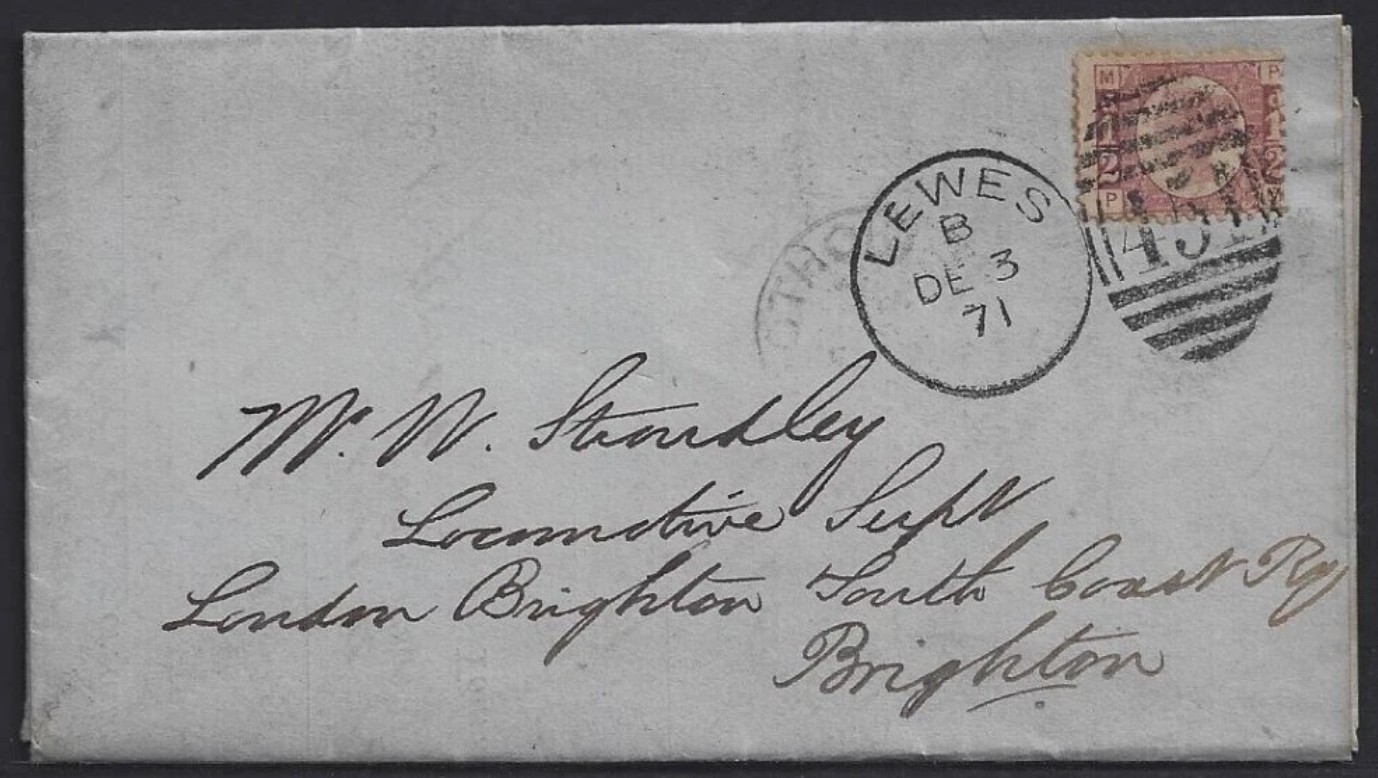 M P
1 1
2 2
P M
LEWES
B
DE 3
71
Mr. W. Stroudley
Locomotive Supt
London Brighton South Coast Ry
Brighton